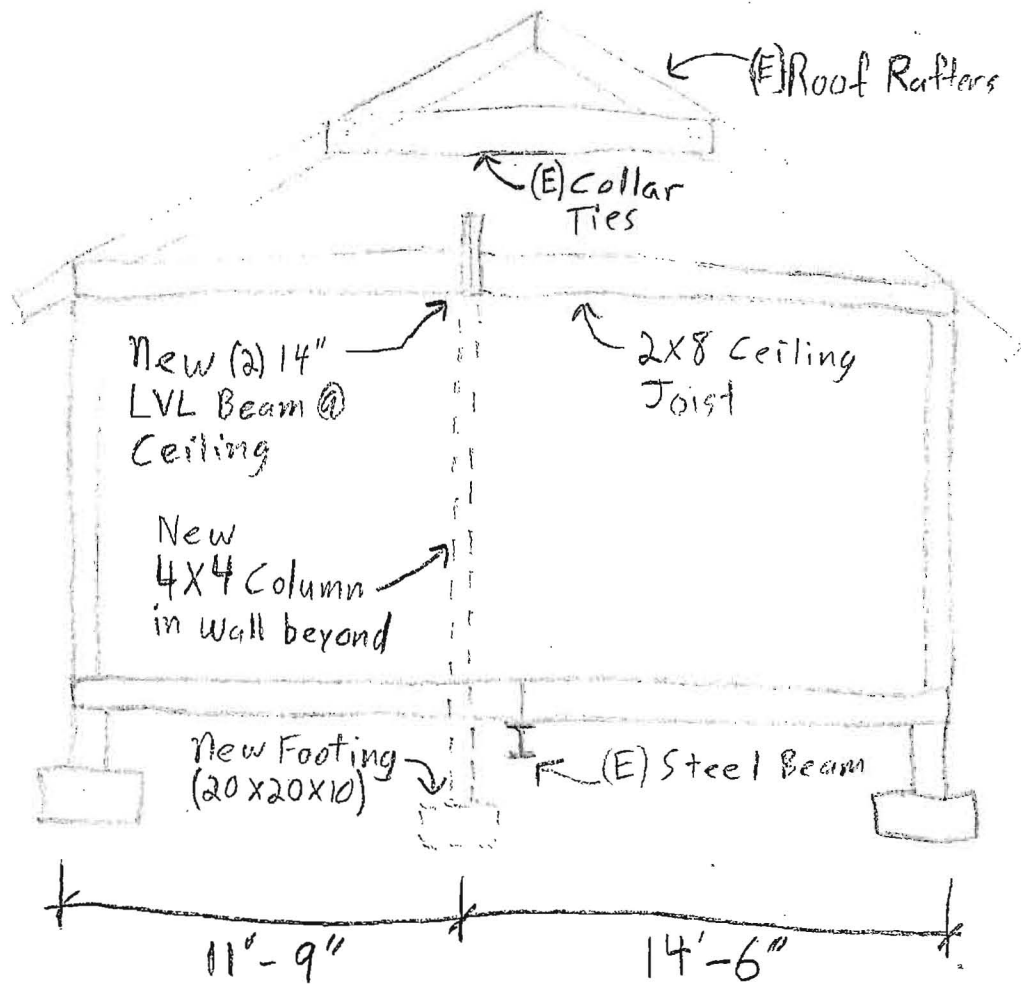 (E) Roof Rafters
(E) Collar
Ties
New (2) 14"
LVL Beam @
Ceiling
2X8 Ceiling
Joist
New
4X4 Column
in wall beyond
New Footing
(20X20X10)
(E) Steel Beam
11'-9"
14'-6"